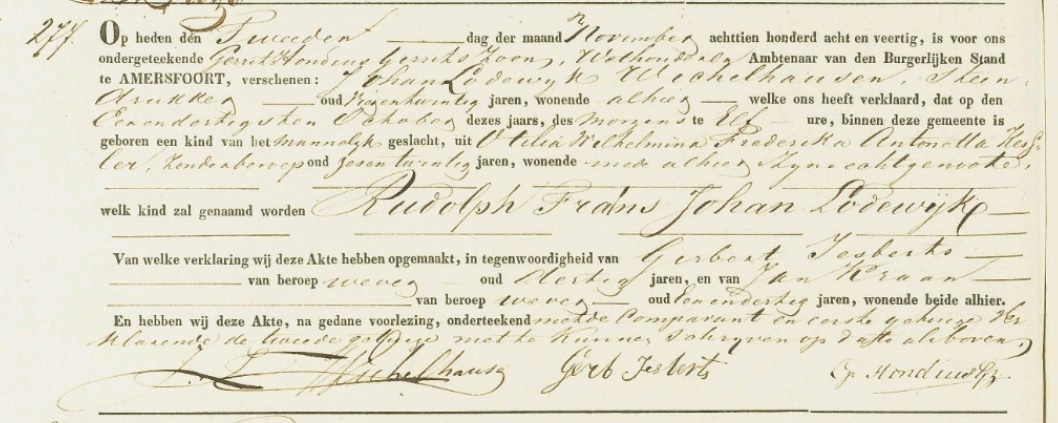 277.
Op heden den Tweeden dag der maand November achttien honderd acht en veertig, is voor ons
ondergeteekende Gerrit Hondius Gerrits Zoon, Wethouder Ambtenaar van den Burgerlijken Stand
te AMERSFOORT, verschenen: Johan Lodewyk Wichelhausen, Steen
drukker oud Negenentwintig jaren, wonende alhier welke ons heeft verklaard, dat op den
Eenendertigsten October dezes jaars, des morgens te Elf ure, binnen deze gemeente is
geboren een kind van het mannelyk geslacht, uit Otilia Wilhelmina Frederika Antonetta Kes
ler, Zonder beroep oud Zesentwintig jaren, wonende mede alhier Zyne echtgenoote,
welk kind zal genaamd worden Rudolph Frans Johan Lodewijk
Van welke verklaring wij deze Akte hebben opgemaakt, in tegenwoordigheid van Gerbert Jesberts
van beroep wever oud dertig jaren, en van Jan Kraan
van beroep wever oud Eenendertig jaren, wonende beide alhier.
En hebben wij deze Akte, na gedane voorlezing, onderteekend met de Comparant en eerste getuige Ver
klarende de tweede getuige niet te kunnen schryven op dato als boven,
J. L. Wichelhausen Gerb Jesberts Hondius Gz